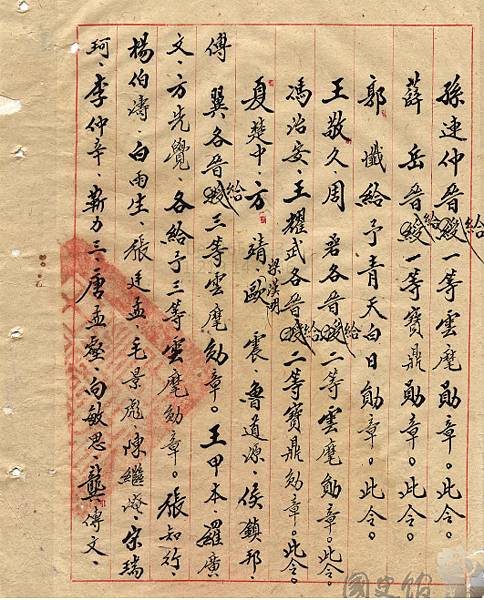 孫連仲晉給一等雲麾勛章。此令。
薛　岳晉給一等寶鼎勛章。此令。
郭　懺給予青天白日勛章。此令。
王敬久、周　嵒各晉給二等雲麾勛章。此令。
馮治安、王耀武各晉給二等寶鼎勛章。此令。
夏楚中、方　靖、梁漢明、歐　震、魯道源、侯鎮邦、
傅　翼、各晉給三等雲麾勛章。王甲本、羅廣
文、方先覺　各給予三等雲麾勛章。張知行、
楊伯濤、白雨生、張廷孟、毛景彪、陳繼、宋瑞
珂、李仲辛、靳力三、唐孟壑、向敏思、龔傳文、
國史館